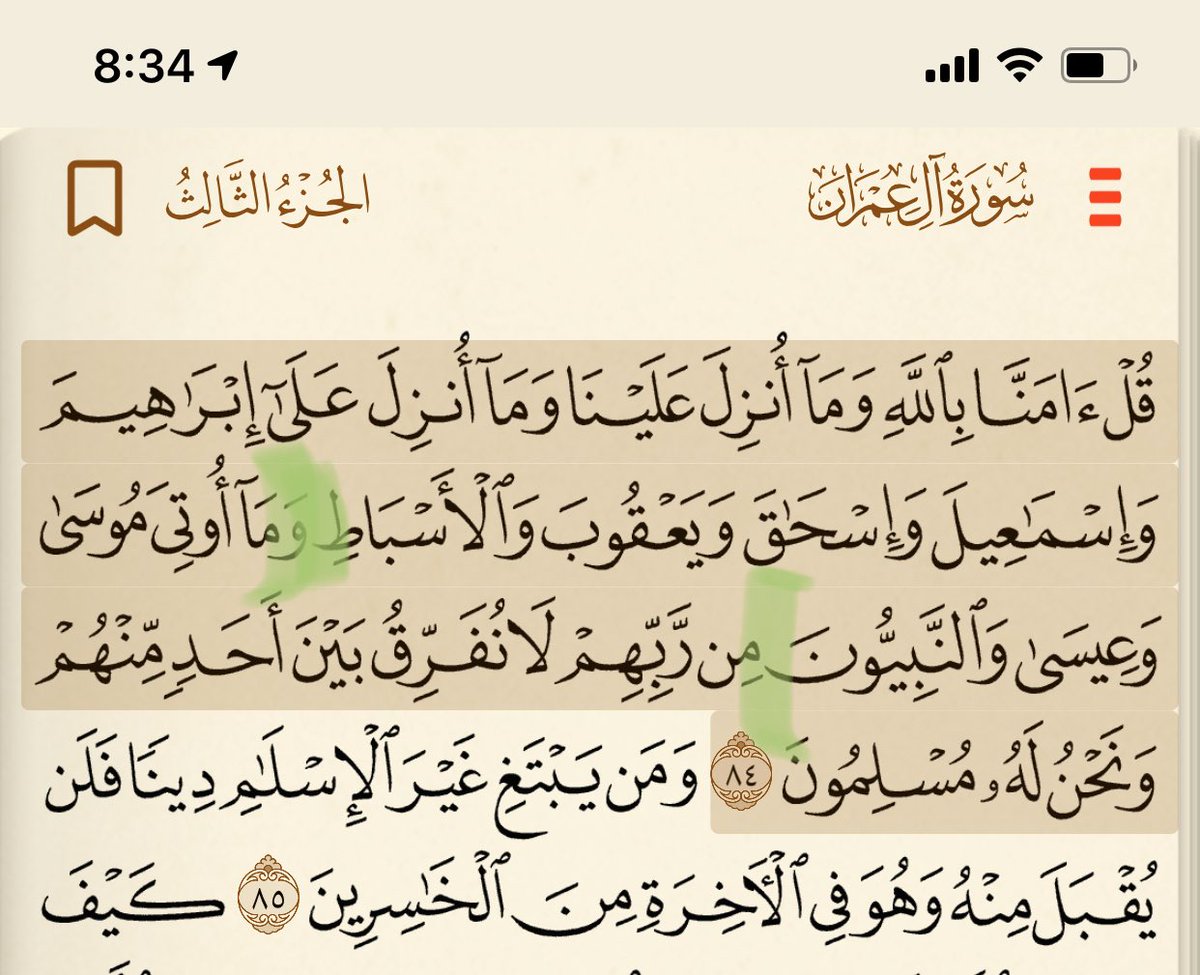 8:34
سُورَةُ آلِ عِمْرَانَ
الجُزْءُ الثَّالِثُ
قُلْ ءَامَنَّا بِٱللَّهِ وَمَآ أُنزِلَ عَلَيْنَا وَمَآ أُنزِلَ عَلَىٰٓ إِبْرَٰهِيمَ
وَإِسْمَٰعِيلَ وَإِسْحَٰقَ وَيَعْقُوبَ وَٱلْأَسْبَاطِ وَمَآ أُوتِىَ مُوسَىٰ
وَعِيسَىٰ وَٱلنَّبِيُّونَ مِن رَّبِّهِمْ لَا نُفَرِّقُ بَيْنَ أَحَدٍ مِّنْهُمْ
وَنَحْنُ لَهُۥ مُسْلِمُونَ ٨٤ وَمَن يَبْتَغِ غَيْرَ ٱلْإِسْلَٰمِ دِينًا فَلَن
يُقْبَلَ مِنْهُ وَهُوَ فِى ٱلْأَخِرَةِ مِنَ ٱلْخَٰسِرِينَ ٨٥ كَيْفَ